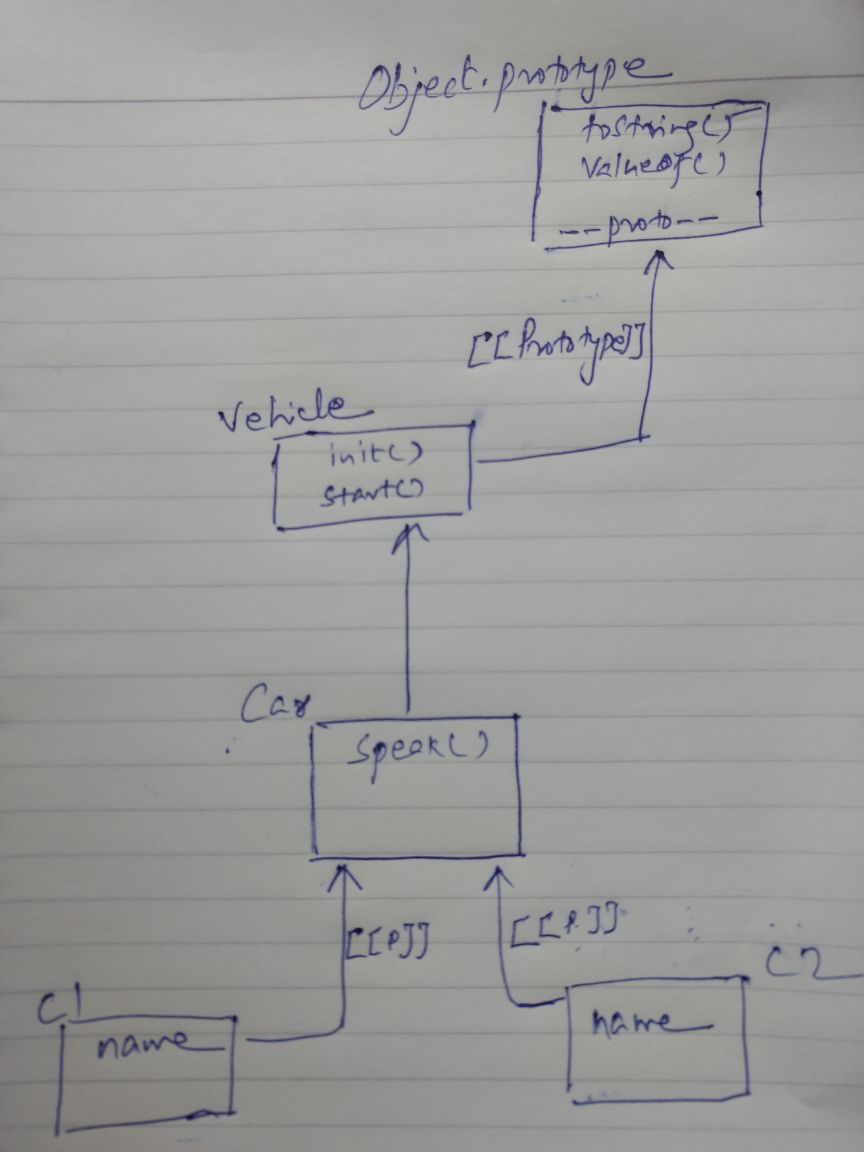 Object.prototype
toString()
valueOf()
--proto--
[[Prototype]]
Vehicle
init()
start()
Car
speak()
[[P]]
[[P.]]
C1
name
C2
name